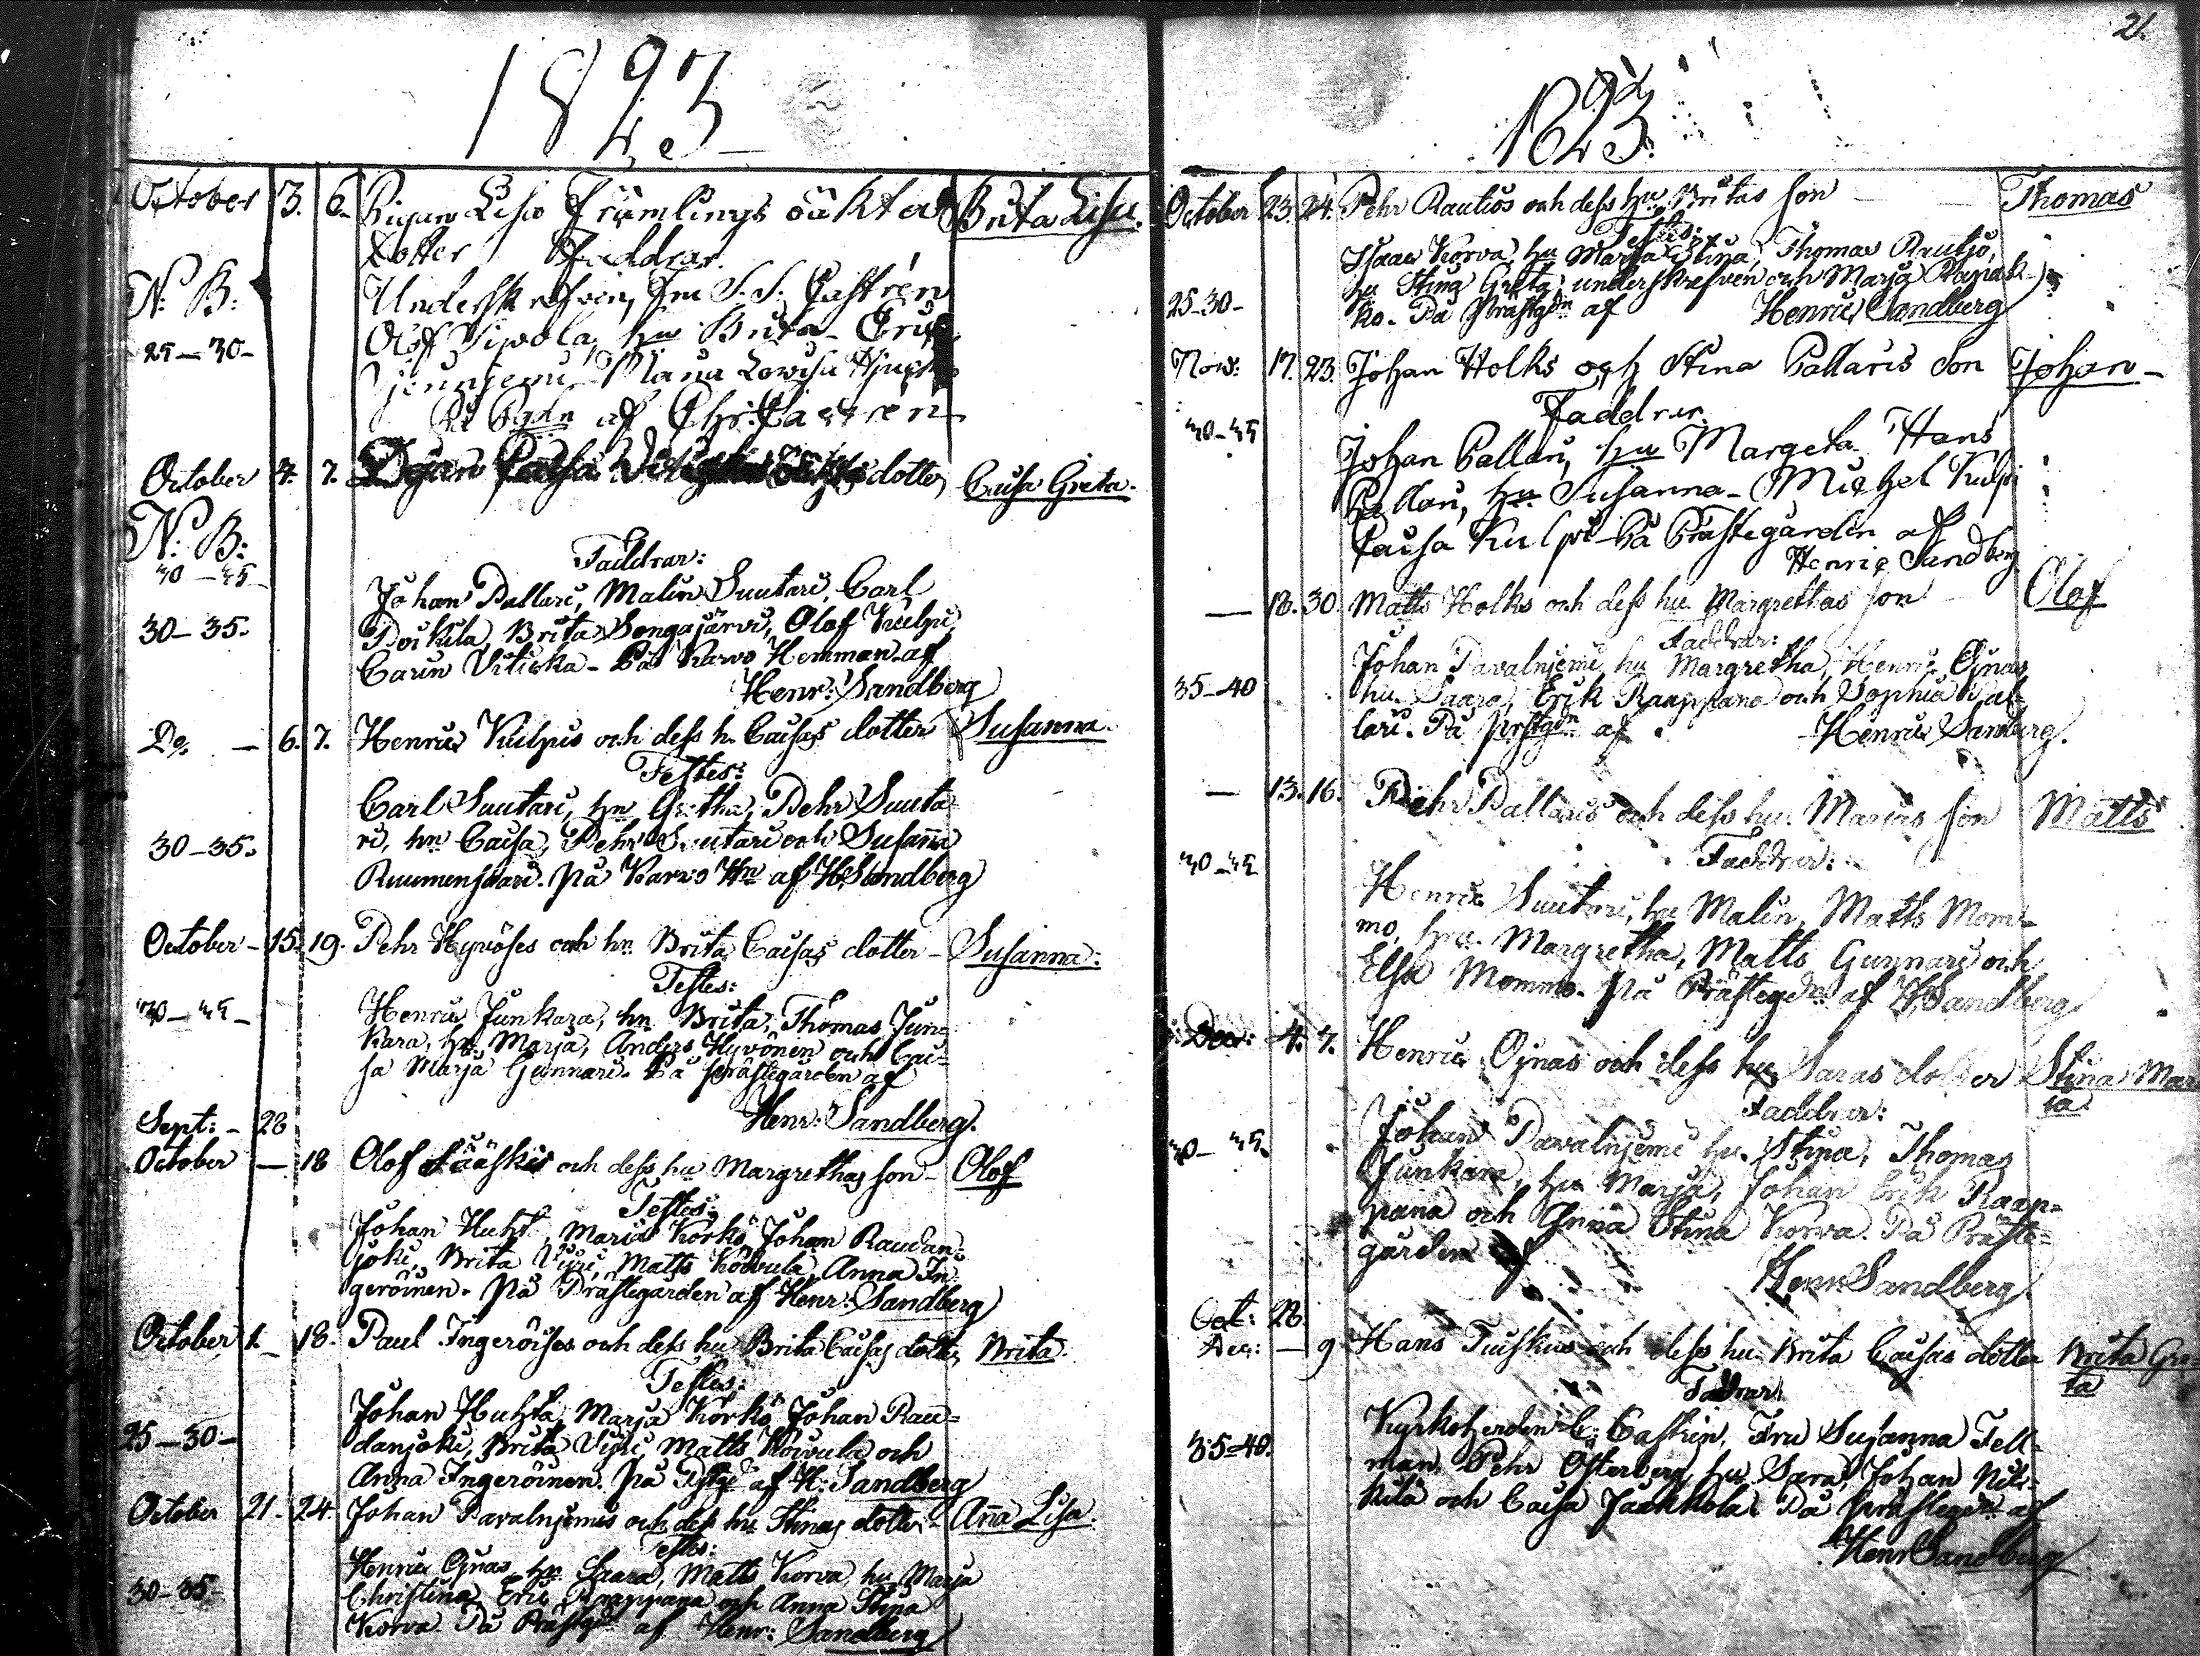 1823
October 3. 6. Pigan Lisa Främlings oäkta Brita Lisa.
dotter Faddrar.
N: B: Underskrefven, Fru S. S. Castrén
25–30– Olof Sipola, hu Brita
Maria Lovisa
På af Chr: Castrén
October 4. 7. Pigan Caisa dotter Caisa Greta.
N: B:
40–45– Faddrar:
Johan Pallari, Malin Suutari, Carl
30–35. Poikila, Brita Songajärvi, Olof Kulpi,
Carin Viticka – På Karvo Hemman af
Henr: Sandberg
Do – 6. 7. Henric Kulpis och dess h. Caisas dotter Susanna.
Testes:
Carl Suutari, hu Gretha, Pehr Suuta-
30–35. ri, hu Caisa, Pehr Suutari och Susaña
Ruumensaari. På Karvo Hn af H: Sandberg
October – 15. 19. Pehr Hyvöses och hu Brita Caisas dotter – Susanna:
Testes:
40–45– Henric Junkara, hu Brita, Thomas Jun-
kara, hu Marja, Anders Hyvönen och Cai-
sa Marja Gunnari. På prästegården af
Henr: Sandberg.
Sept: – 28
October – 18 Olof Sääskis och dess hu Margrethas son – Olof
Testes:
Johan Huht, Maria Körkö, Johan Raudan-
joki, Brita Viiri, Matts Koivula, Anna In-
geröinen. På Prästegården af Henr: Sandberg
October 1. – 18. Paul Ingeröises och dess hu Brita Caisas dotter, Brita.
Testes:
Johan Huhta, Marja Körkö, Johan Rau-
25–30– danjoki, Brita Viiri, Matts Koivula och
Anna Ingeröinen. På af H: Sandberg
October 21. 24. Johan Pavalnjemis och dess hu Stinas dotter – Aña Lisa.
Testes:
Henric Ojnas, hu Saara, Matts Korva, hu Marja
30–35– Christina, Eric Raappana och Anna Stina
Korva På Prästgdn af Henr: Sandberg
21.
1823.
October 23. 24. Pehr Rautios och dess hu Britas son – Thomas
Testes:
Isaac Korva, hu Marja Stina, Thomas Rautjo,
hu Stina Greta, underskrefven och Marja
25–30– ko. På Prästgdn af Henric Sandberg
Nov: 17. 23. Johan Holks och Stina Pallaris son Johan –
Faddrar.
40–45 Johan Pallari, hu Margeta Hans
Pallari, hu Susanna – Michel Kulpi
Caisa Kulpi – På Prästegården af
Henric Sandberg
– 18. 30. Matts Holks och dess hu Margrethas son – Olof
Faddrar:
Johan Pavalnjemi, hu Margretha, Henric Ojnas
35–40 hu Saara, Erik Raappana och Sophia Pal-
lari. På prstgdn af Henric Sandberg.
– 13. 16. Pehr Pallaris och dess hu Marias son Matts
Faddrar:
40–45 Henric Suutari, hu Malin, Matts Mom-
mo, hu Margretha, Matts Gunnari och
Elsa Mommo. På Prästegdn af H: Sandberg
Decr: 4. 7. Henric Ojnas och dess hu Saras dotter Stina Mar-
ia.
Faddrar:
Johan Pavalnjemi hu Stina, Thomas
40–45. Junkara, hu Marja, Johan Erik Raap-
pana och Anna Stina Korva. På Präste-
gården af
Henr: Sandberg
Oct: 28.
Dec: – 9 Hans Tuiskus och dess hu Brita Caisas dotter Brita Gre-
ta
Faddrar:
Kyrkoherden C: Castrén, Fru Susanna Fell-
35–40. man, Pehr Österberg hu Sara, Johan Nik-
kilä och Caisa Jaakkola. På prästegdn af
Henr Sandberg